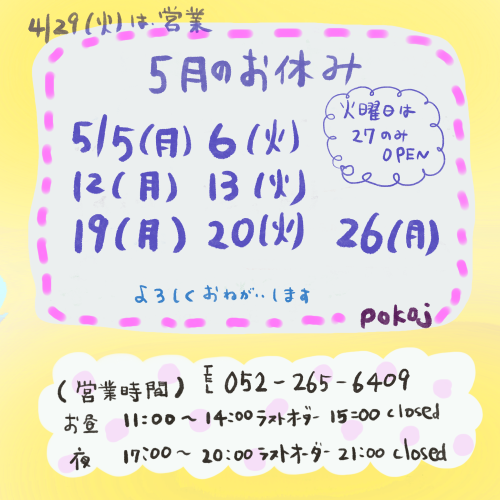 4/29(火)は、営業
5月のお休み
5/5(月) 6(火)
12(月) 13(火)
19(月) 20(火) 26(月)
火曜日は
27のみ
OPEN
よろしくおねがいします
pokaj
(営業時間) TEL 052-265-6409
お昼 11:00〜14:00ラストオーダー 15:00 closed
夜 17:00〜20:00ラストオーダー 21:00 closed